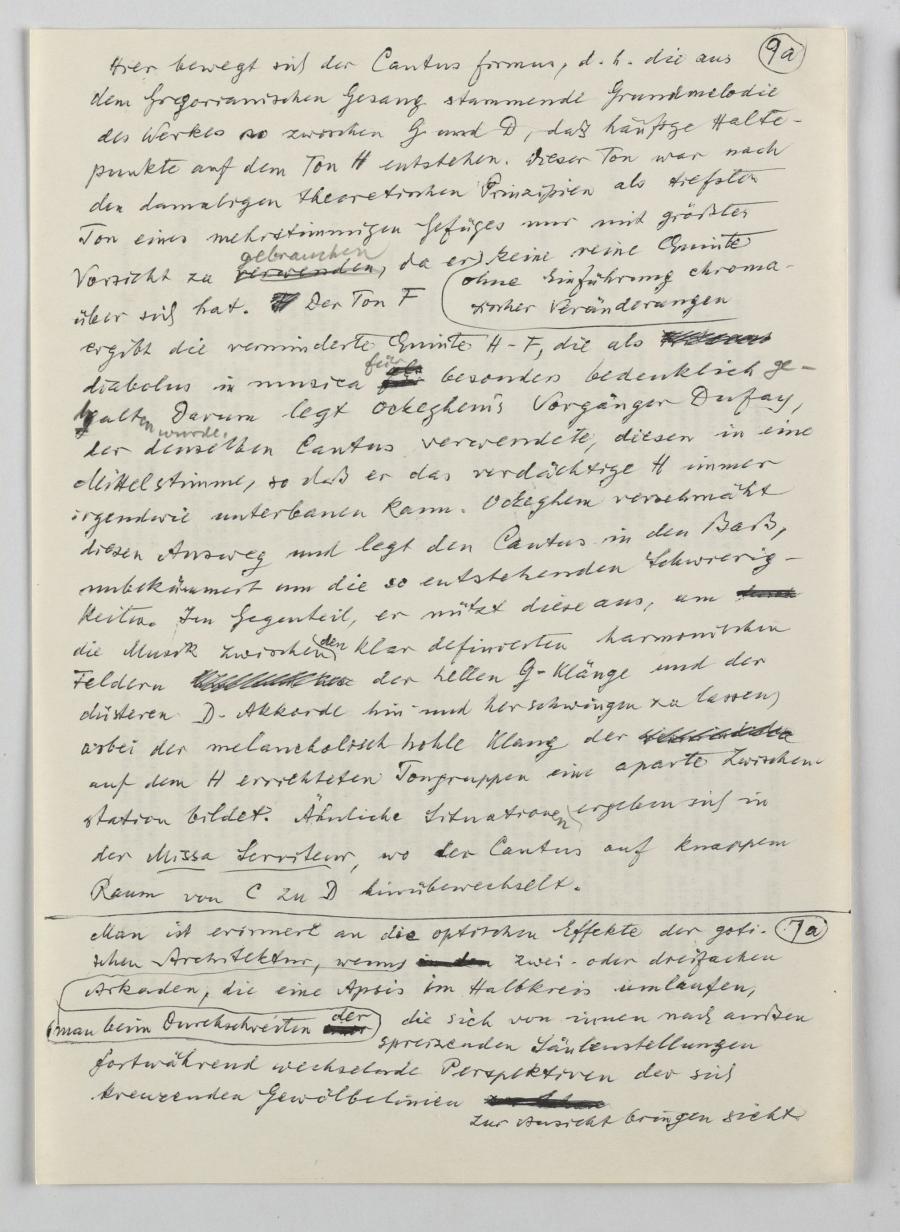 9a
Hier bewegt sich der Cantus firmus, d. h. die aus
dem Gregorianischen Gesang stammende Grundmelodie
des Werkes so zwischen G und D, daß häufige Halte-
punkte auf dem Ton H entstehen. Dieser Ton war nach
den damaligen theoretischen Prinzipien als tiefster
Ton eines mehrstimmigen Gefüges nur mit größter
gebrauchen
Vorsicht zu verwenden, da er keine reine Quinte
ohne Einführung chroma-
tischer Veränderungen
über sich hat. Der Ton F
ergibt die verminderte Quinte H-F, die als
für
diabolus in musica besonders bedenklich ge-
halten wurde.
Darum legt Ockeghems Vorgänger Dufay,
der denselben Cantus verwendete, diesen in eine
Mittelstimme, so daß er das verdächtige H immer
irgendwie unterbauen kann. Ockeghem verschmäht
diesen Ausweg und legt den Cantus in den Baß,
unbekümmert um die so entstehenden Schwierig-
keiten. Im Gegenteil, er nützt diese aus, um
die Musik zwischen den klar definierten harmonischen
Feldern der hellen G-Klänge und der
düsteren D-Akkorde hin und her schwingen zu lassen,
wobei der melancholisch hohle Klang der
auf dem H errichteten Tongruppen eine aparte Zwischen-
station bildet. Ähnliche Situationen ergeben sich in
der Missa Serviteur, wo der Cantus auf knappem
Raum von C zu D hinüberwechselt.
7a
Man ist erinnert an die optischen Effekte der goti-
schen Architektur, wenns in den zwei- oder dreifachen
Arkaden, die eine Apsis im Halbkreis umlaufen,
man beim Durchschreiten der die sich von innen nach außen
spreizenden Säulenstellungen
fortwährend wechselnde Perspektiven der sich
kreuzenden Gewölbelinien
zur Ansicht bringen sieht